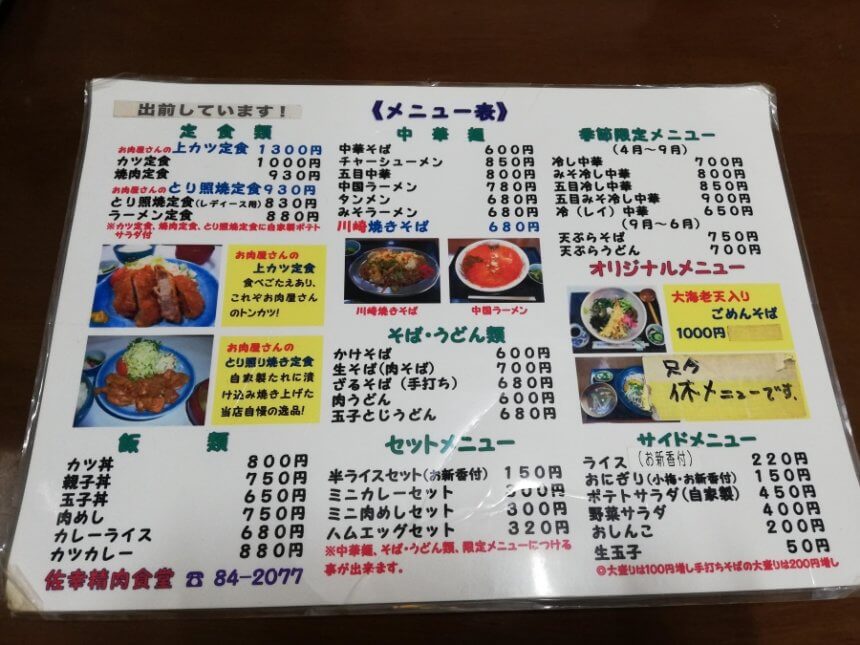 出前しています!
《メニュー表》
定食類
お肉屋さんの上カツ定食 1300円
カツ定食 1000円
焼肉定食 930円
お肉屋さんのとり照焼定食 930円
とり照焼定食(レディース用) 830円
ラーメン定食 880円
※カツ定食、焼肉定食、とり照焼定食に自家製ポテト
サラダ付
お肉屋さんの
上カツ定食
食べごたえあり、
これぞお肉屋さん
のトンカツ!
お肉屋さんの
とり照り焼き定食
自家製たれに漬
け込み焼き上げた
当店自慢の逸品!
飯類
カツ丼 800円
親子丼 750円
玉子丼 650円
肉めし 750円
カレーライス 680円
カツカレー 880円
佐幸精肉食堂 ☎ 84-2077
中華麺
中華そば 600円
チャーシューメン 850円
五目中華 800円
中国ラーメン 780円
タンメン 680円
みそラーメン 680円
川崎焼きそば 680円
川崎焼きそば
中国ラーメン
そば・うどん類
かけそば 600円
生そば(肉そば) 700円
ざるそば(手打ち) 680円
肉うどん 600円
玉子とじうどん 680円
セットメニュー
半ライスセット(お新香付) 150円
ミニカレーセット 300円
ミニ肉めしセット 300円
ハムエッグセット 320円
※中華麺、そば・うどん類、限定メニューにつける
事が出来ます。
季節限定メニュー
(4月~9月)
冷し中華 700円
みそ冷し中華 800円
五目冷し中華 850円
五目みそ冷し中華 900円
冷(レイ)中華 650円
(9月~6月)
天ぷらそば 750円
天ぷらうどん 700円
オリジナルメニュー
大海老天入り
ごめんそば
1000円
只今
休メニューです。
サイドメニュー
ライス(お新香付) 220円
おにぎり(小梅・お新香付) 150円
ポテトサラダ(自家製) 450円
野菜サラダ 400円
おしんこ 200円
生玉子 50円
◎大盛りは100円増し手打ちそばの大盛りは200円増し